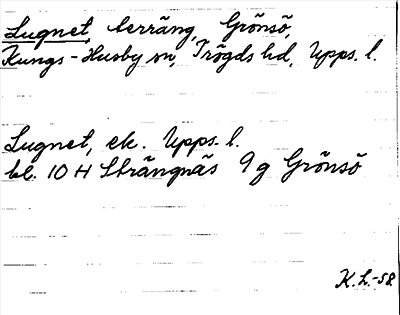 Lugnet, terräng, Grönsö,
Kungs-Husby sn, Trögds hd, Upps. l.
Lugnet, ek. Upps. l.
bl. 10 H Strängnäs 9 g Grönsö
K.L.-58.